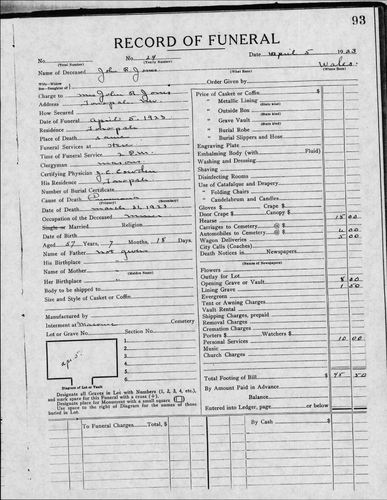 93
RECORD OF FUNERAL
No. No. 24 Date April 5 1933
(Total Number) (Yearly Number)
Name of Deceased John R. Jones Wales
(What Race) (Where Born)
Wife-Widow
Son-Daughter of Order Given by
Charge to Mrs John R. Jones
Address Tonopah Nev
How Secured
Date of Funeral April 5, 1933
Residence Tonopah
Place of Death Same
Funeral Services at Here
Time of Funeral Services 2 P.M.
Clergyman Masons
Certifying Physician J.C. Cowden
His Residence Tonopah
Number of Burial Certificate
Cause of Death Pneumonia
(Primary) (Secondary)
Date of Death 1933
Occupation of the Deceased Miner
Single or Married Religion
Date of Birth
Aged 57 Years, 7 Months, 18 Days.
Name of Father Not given
His Birthplace
Name of Mother
(Maiden Name)
Her Birthplace
Body to be shipped to
Size and Style of Casket or Coffin
Manufactured by
Interment at Masonic Cemetery
Lot or Grave No. Section No.
1
2
3
4
5
Diagram of Lot or Vault
Designate all Graves in Lot with Numbers (1, 2, 3, 4, etc.),
and mark space for this Funeral with a cross (+).
Designate place for Monument with a small square
Use space to the right of Diagram for the names of those
buried in Lot.
Price of Casket or Coffin $
" Metallic Lining
(State Kind)
" Outside Box
(State Kind)
" Grave Vault
(State Kind)
" Burial Robe
" Burial Slippers and Hose
Engraving Plate
Embalming Body (with Fluid)
Washing and Dressing
Shaving
Disinfecting Rooms
Use of Catafalque and Drapery
" Folding Chairs
" Candelabrum and Candles
Gloves $ Crape $
Door Crape $ Canopy $
Hearse 15 00
Carriages to Cemetery
Automobiles to Cemetery
Wagon Deliveries 5 00
City Calls (Coaches)
Death Notices in Newspapers
(Names of Newspapers)
Flowers
Outlay for Lot
Opening Grave or Vault 8 00
Lining Grave 1 50
Evergreen
Tent or Awning Charges
Vault Rental
Shipping Charges, prepaid
Removal Charges
Cremation Charges
Porters $ Watchers $
Personal Services 10 00
Music
Church Charges
Total Footing of Bill $ 95 50
By Amount Paid in Advance
Balance
Entered into Ledger, page or below
To Funeral Charges $ By Cash $